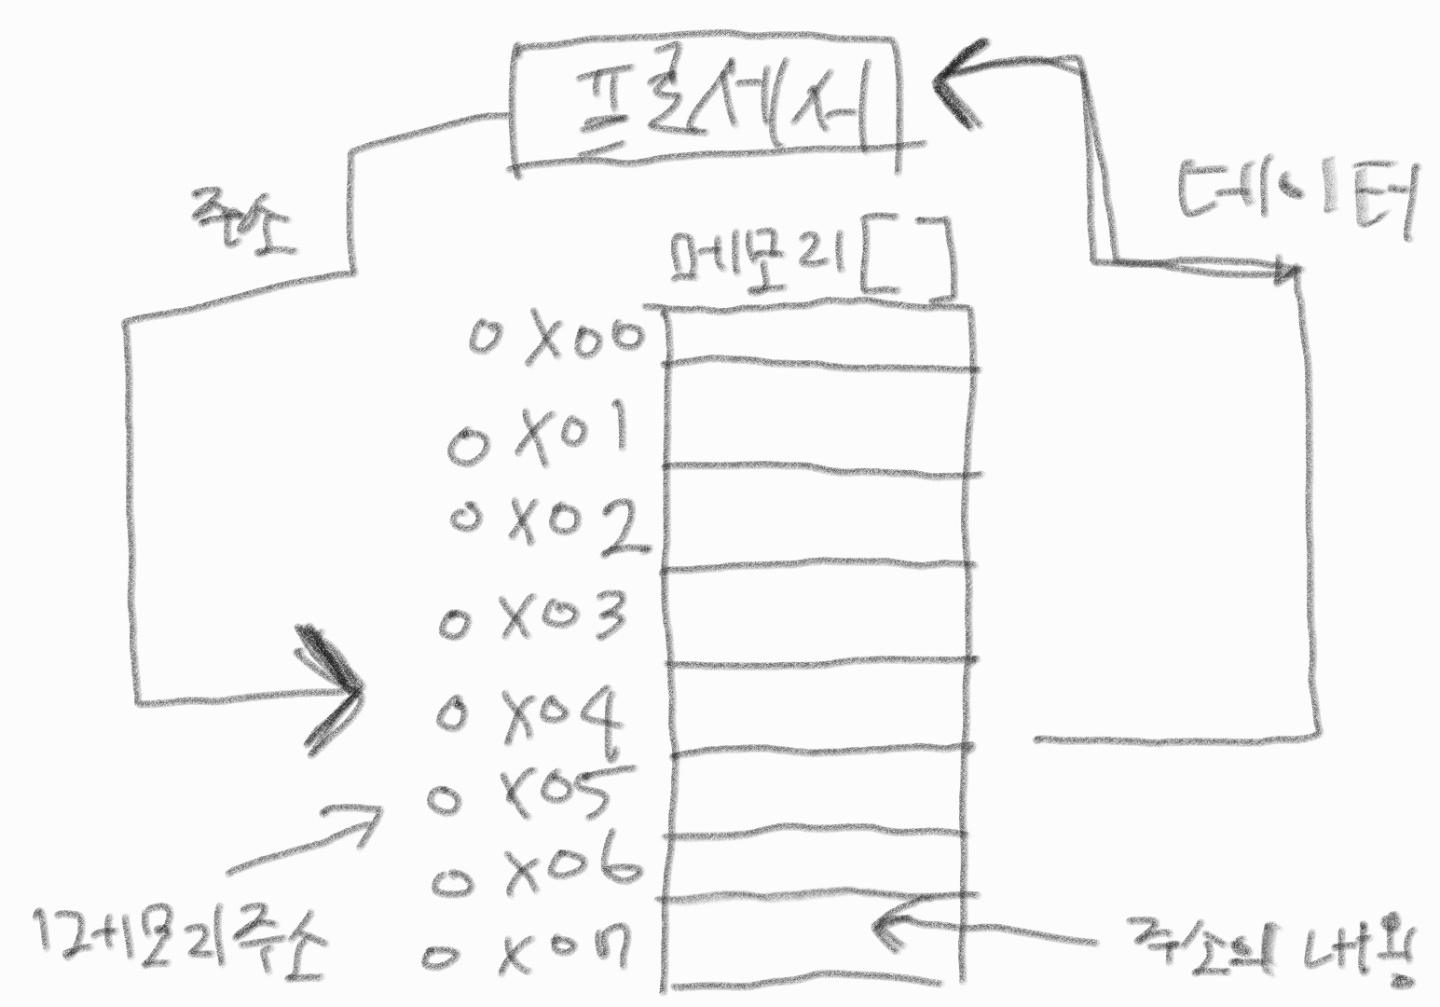 프로세서
데이터
주소
메모리 [ ]
0x00
0x01
0x02
0x03
0x04
0x05
0x06
0x07
메모리주소
주소의 내용